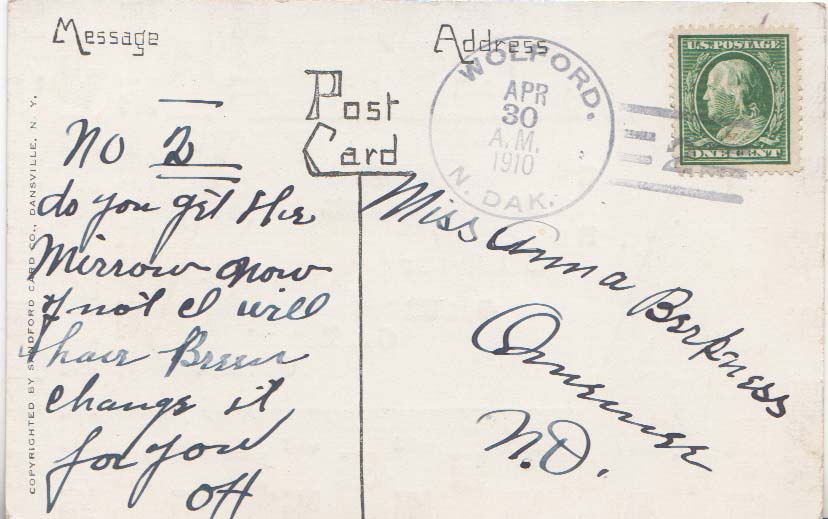 Message
Address
Post
Card
WOLFORD.
APR
30
A.M.
1910
N. DAK.
U.S. POSTAGE
ONE CENT
No 2
do you get the
Mirrow now
if not I will
have Breen
change it
for you
OH
Miss Anna Berkness
N.D.
COPYRIGHTED BY SANDFORD CARD CO., DANSVILLE, N. Y.